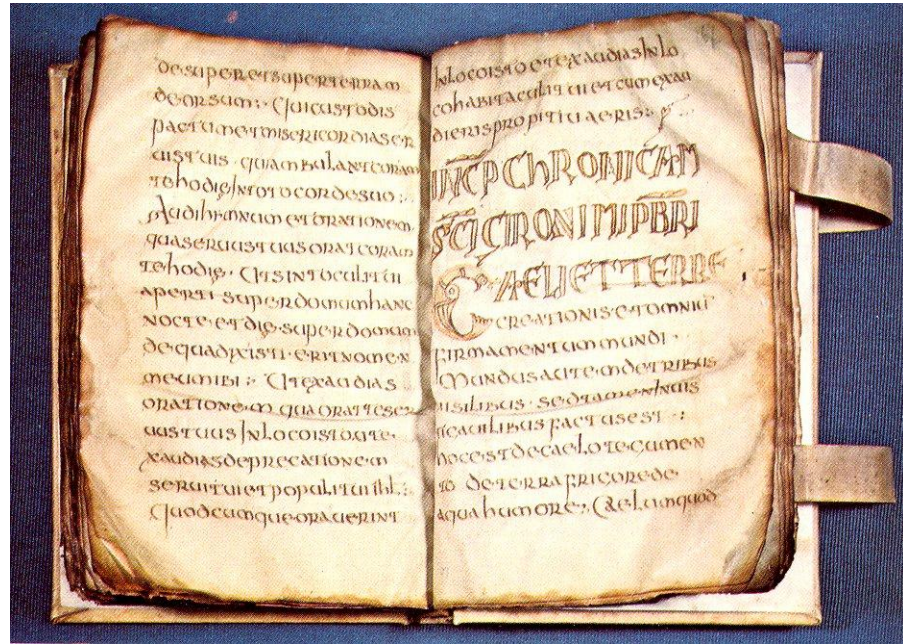 desuperetsuperterram
deorsum:· Quicustodis
pactumetmisericordiaser
uistuis · quiambulantcoram
tehodie Intotocordesuo :·
Audihemnumetorationem
quaseruustuusoratcoram
tehodie · Utsintoculitui
apertisuperdomumhanc
nocte·etdie·superdomum
dequadixisti·eritnomen
meumibi :· Utexaudias
orationem quaoratteser
uustuus Inlocoistoute·
xaudiasdeprecationem
seruituietpopulituiihl·:
Quodcumqueorauerint
Inlocoistoetexaudiasinlo
cohabitaculituietcumexau
dierispropitiuaeris :·
INCP CHRONICAM
SCI CIRONIMI PBRI
CAELIETTERRE
creationisetomniu
firmamentummundi·
Mundusautemdetribus
uisilibus·sedtameninuis
factusest :·
hocestdecaelotegumen
to deterrafrigorede
aquahumore:· Caelumquod